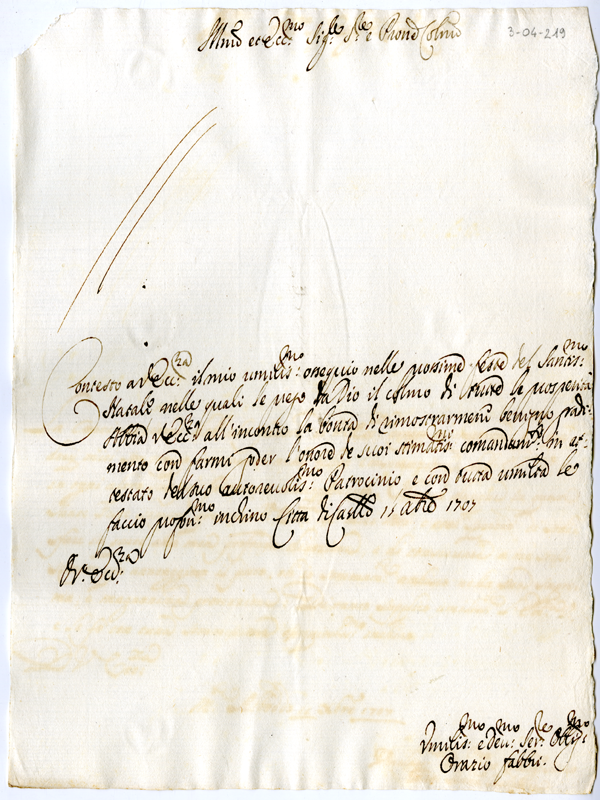 Illmo et Ecc:mo Sig:re Sre e Pnone Colmo
3-04-219
Contesto a V Ecc:za il mio umilis:mo ossequio nelle prossime feste del Santis:mo
Natale nelle quali le prego da Dio il colmo di tutte le prosperità
Abbia V Ecc:za all'incontro la bontà di rimostrarmene benigno
mento con farmi goder l'onore de suoi stimatis:mi comandam:ti in at-
testato del suo autoreuolis:mo Patrocinio e con tutta umiltà le
faccio profon:mo inchino Città di Castello 1707
Di V: Ecc:za
Vmilis:mo e Deu:mo Ser:re Obbl:mo
Orazio fabbri